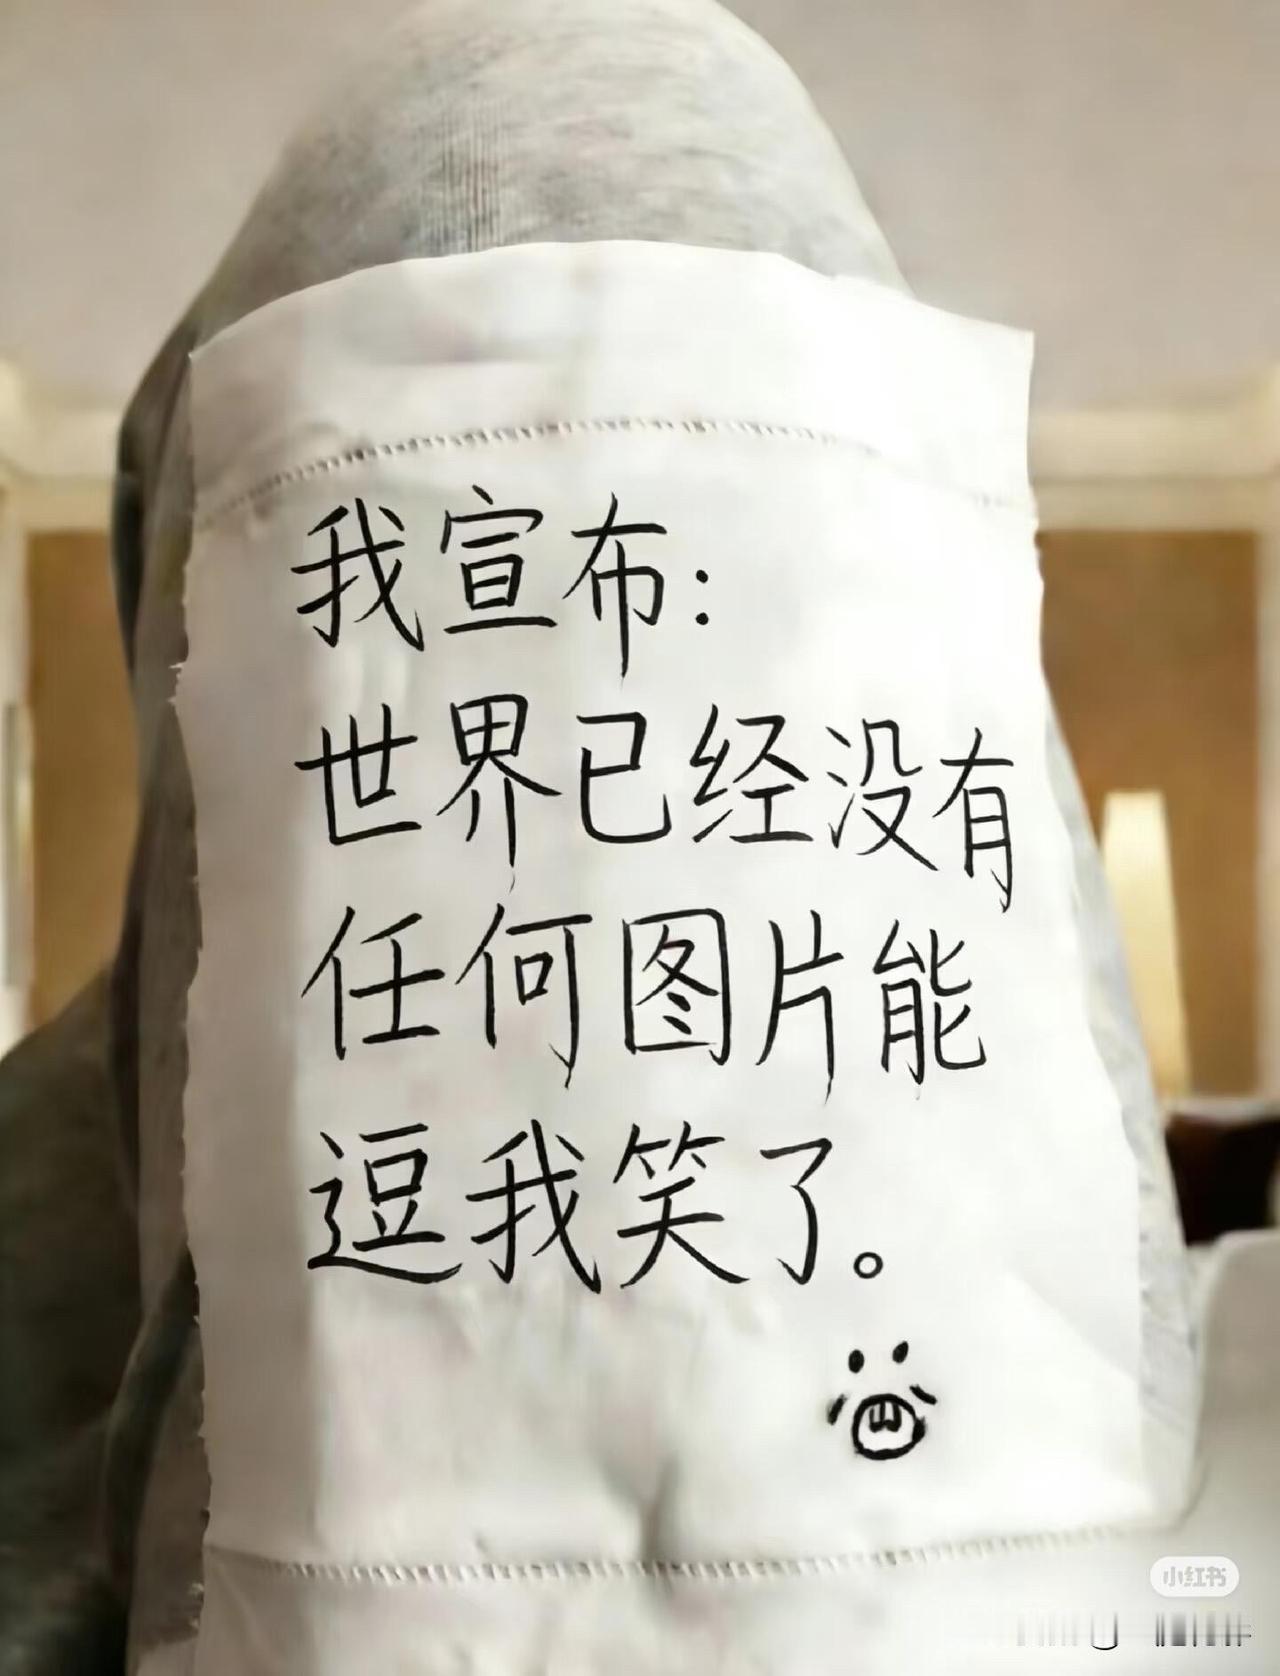 我宣布：
世界已经没有
任何图片能
逗我笑了。
小红书